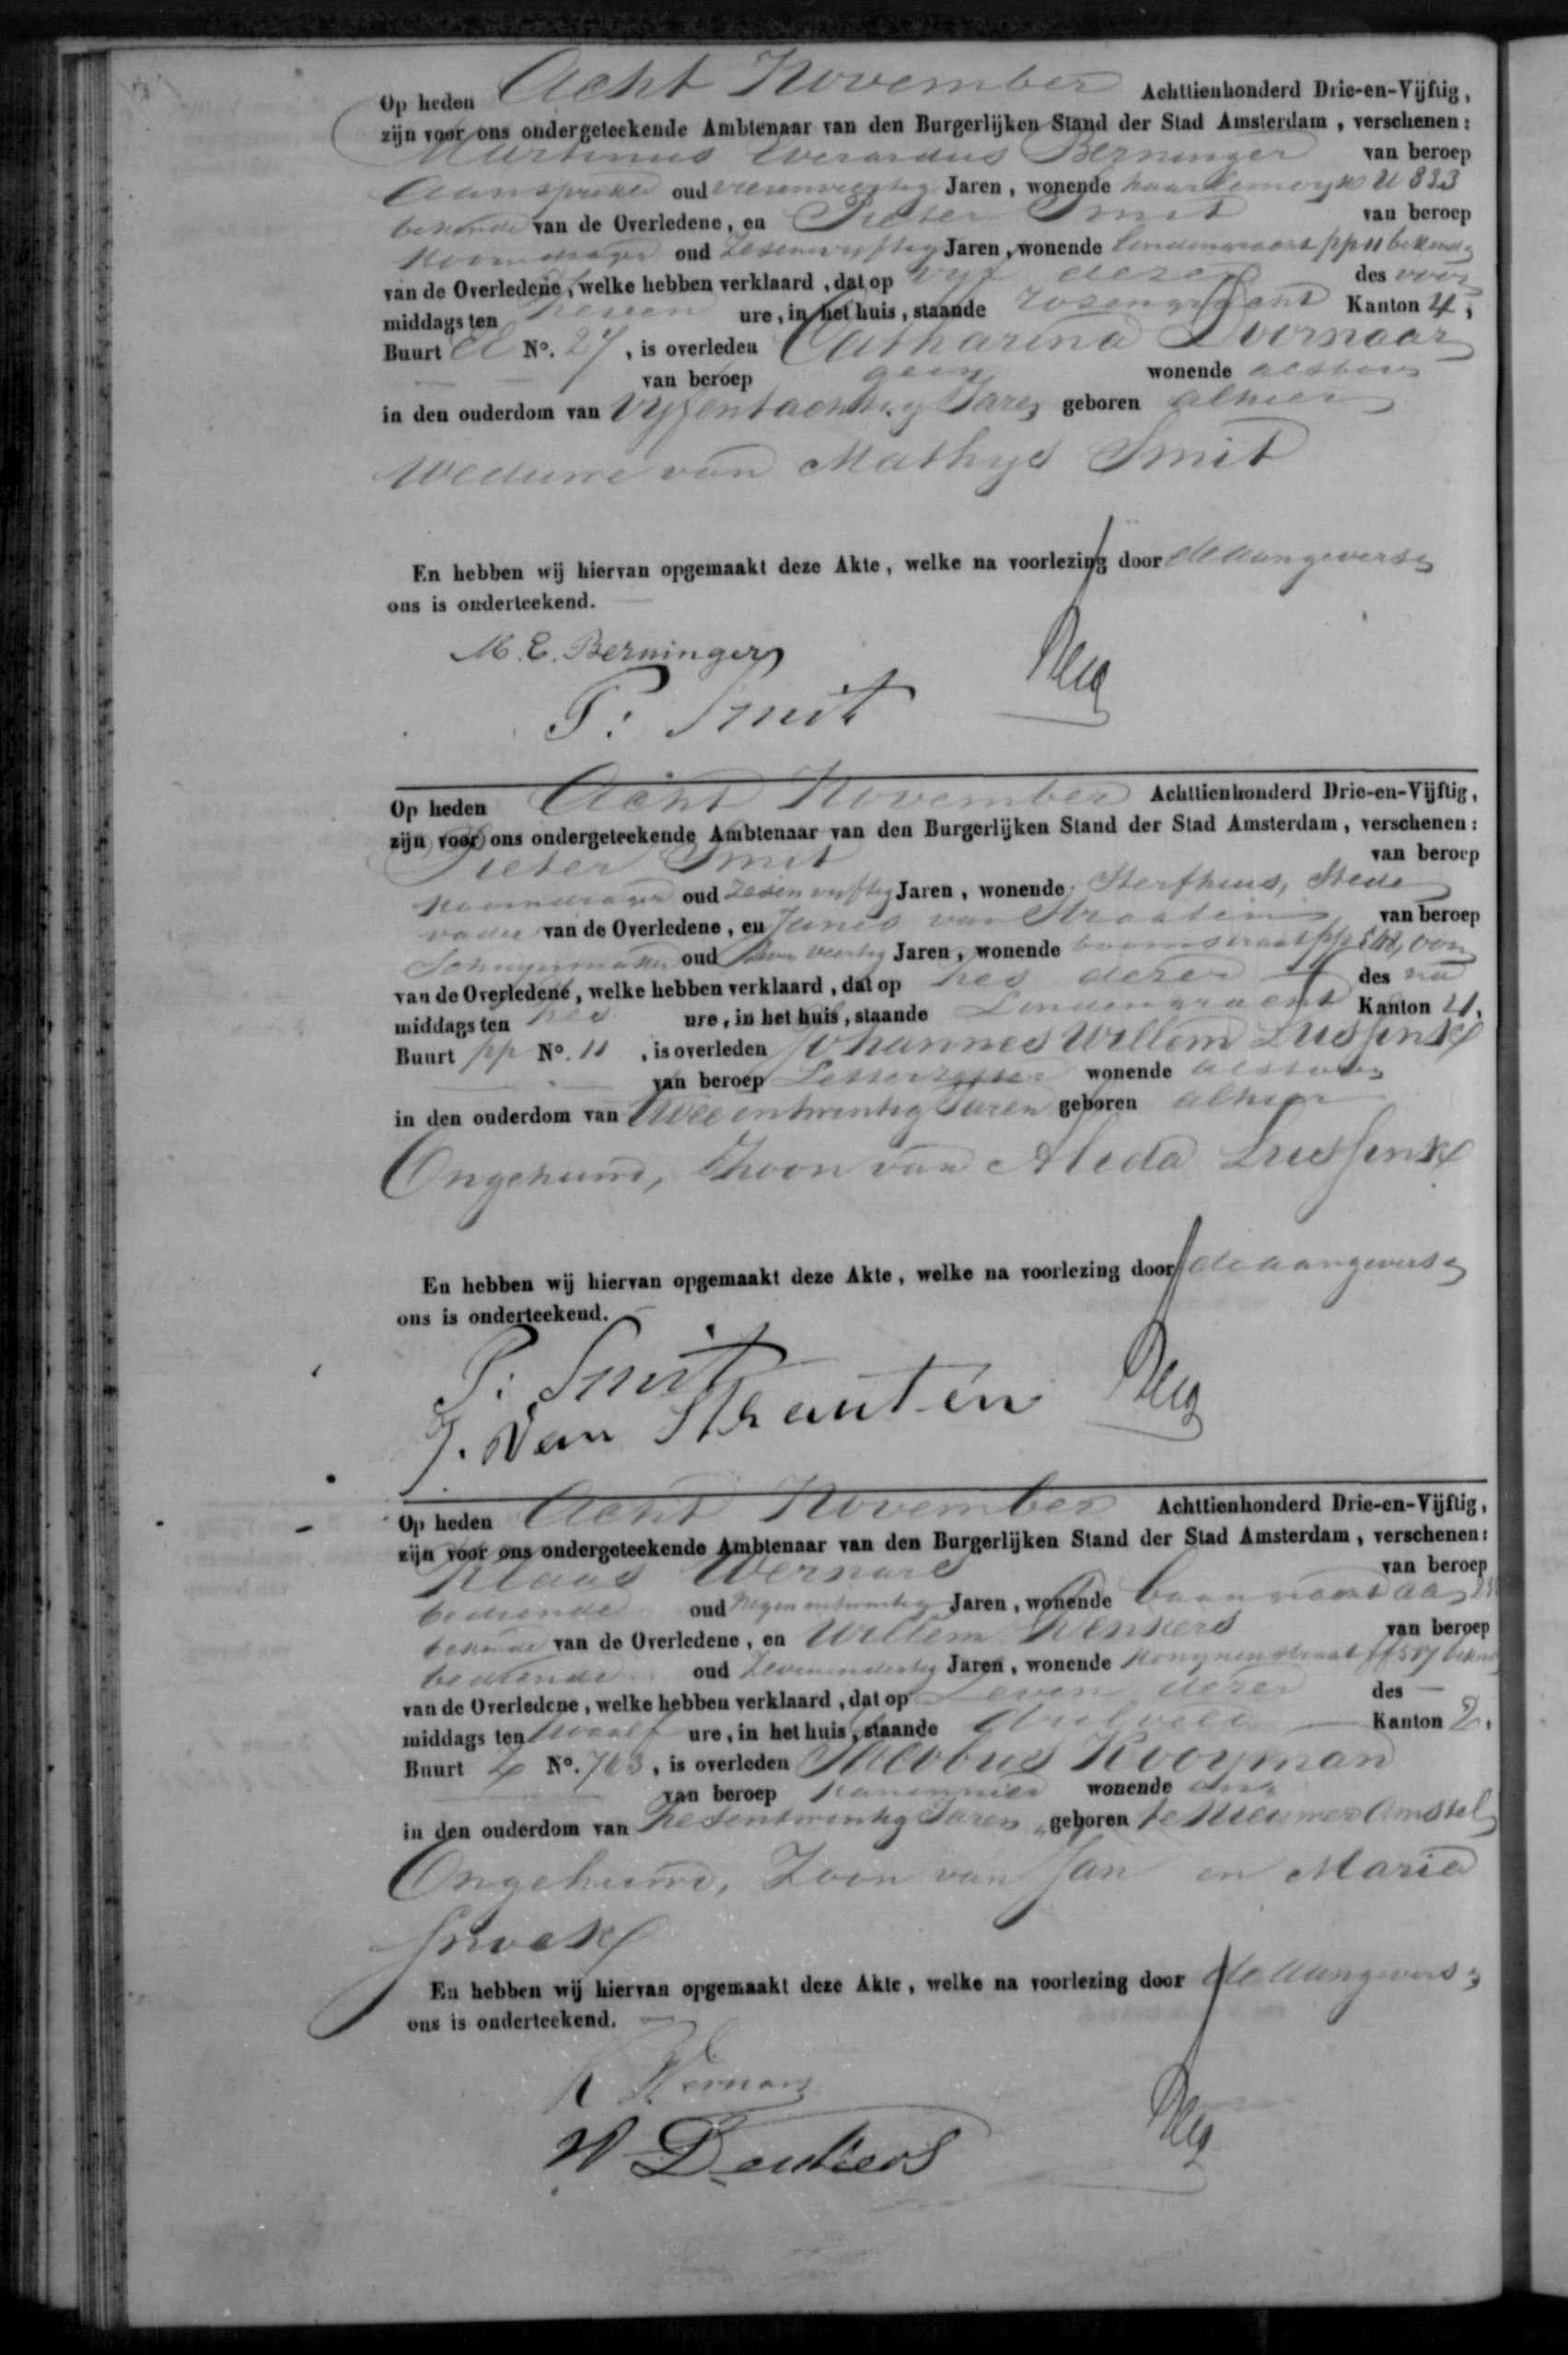 Op heden Acht November Achttienhonderd Drie-en-Vijftig,
zijn voor ons ondergeteekende Ambtenaar van den Burgerlijken Stand der Stad Amsterdam, verschenen:
Martinus Everardus Berninger van beroep
Aanspreker oud Jaren, wonende haarlemerdyk U 893
bekende van de Overledene, en Pieter Smit van beroep
Koorndrager oud Zesenvyftig Jaren, wonende Lindengracht pp 11 bekende
van de Overledene, welke hebben verklaard, dat op vyf dezer des voor
middags ten zeven ure, in het huis, staande Rozengracht Kanton 4,
Buurt No. 27, is overleden Catharina Doornaar
van beroep geen wonende aldaar
in den ouderdom van Vyfentachtig Jaren geboren alhier
Weduwe van Mathys Smit
En hebben wij hiervan opgemaakt deze Akte, welke na voorlezing door de aangevers en
ons is onderteekend.
M. E. Berninger
P: Smit
Op heden Acht November Achttienhonderd Drie-en-Vijftig,
zijn voor ons ondergeteekende Ambtenaar van den Burgerlijken Stand der Stad Amsterdam, verschenen:
Pieter Smit van beroep
Koorndrager oud Zesenvyftig Jaren, wonende Sterfhuis, Stede
vader van de Overledene, en Janus van Straaten van beroep
Schuyermaker oud Jaren, wonende boomstraat pp oom
van de Overledene, welke hebben verklaard, dat op zes dezer des na
middags ten zes ure, in het huis, staande Lindengracht Kanton 4,
Buurt pp No. 11, is overleden Johannes Willem Lussink
van beroep Letterzetter wonende aldaar
in den ouderdom van Twee entwintig Jaren geboren alhier
Ongehuwd, Zoon van Aleda Lussink
En hebben wij hiervan opgemaakt deze Akte, welke na voorlezing door de aangevers en
ons is onderteekend.
P: Smit
J. van Strauten
Op heden Acht November Achttienhonderd Drie-en-Vijftig,
zijn voor ons ondergeteekende Ambtenaar van den Burgerlijken Stand der Stad Amsterdam, verschenen:
Klaas Wernars van beroep
bediende oud Negen entwintig Jaren, wonende
bekende van de Overledene, en Willem Denkers van beroep
bediende oud Zevenendertig Jaren, wonende Konynenstraat ff 517 bekende
van de Overledene, welke hebben verklaard, dat op Zeven dezer des —
middags ten twaalf ure, in het huis, staande Kanton 2,
Buurt Z No. 763, is overleden Jacobus Kooyman
van beroep Kanonnier wonende
in den ouderdom van Zesentwintig Jaren geboren te Nieuwer Amstel
Ongehuwd, Zoon van Jan en Maria
Snoek
En hebben wij hiervan opgemaakt deze Akte, welke na voorlezing door de aangevers en
ons is onderteekend.
K Wernars
W Denkers